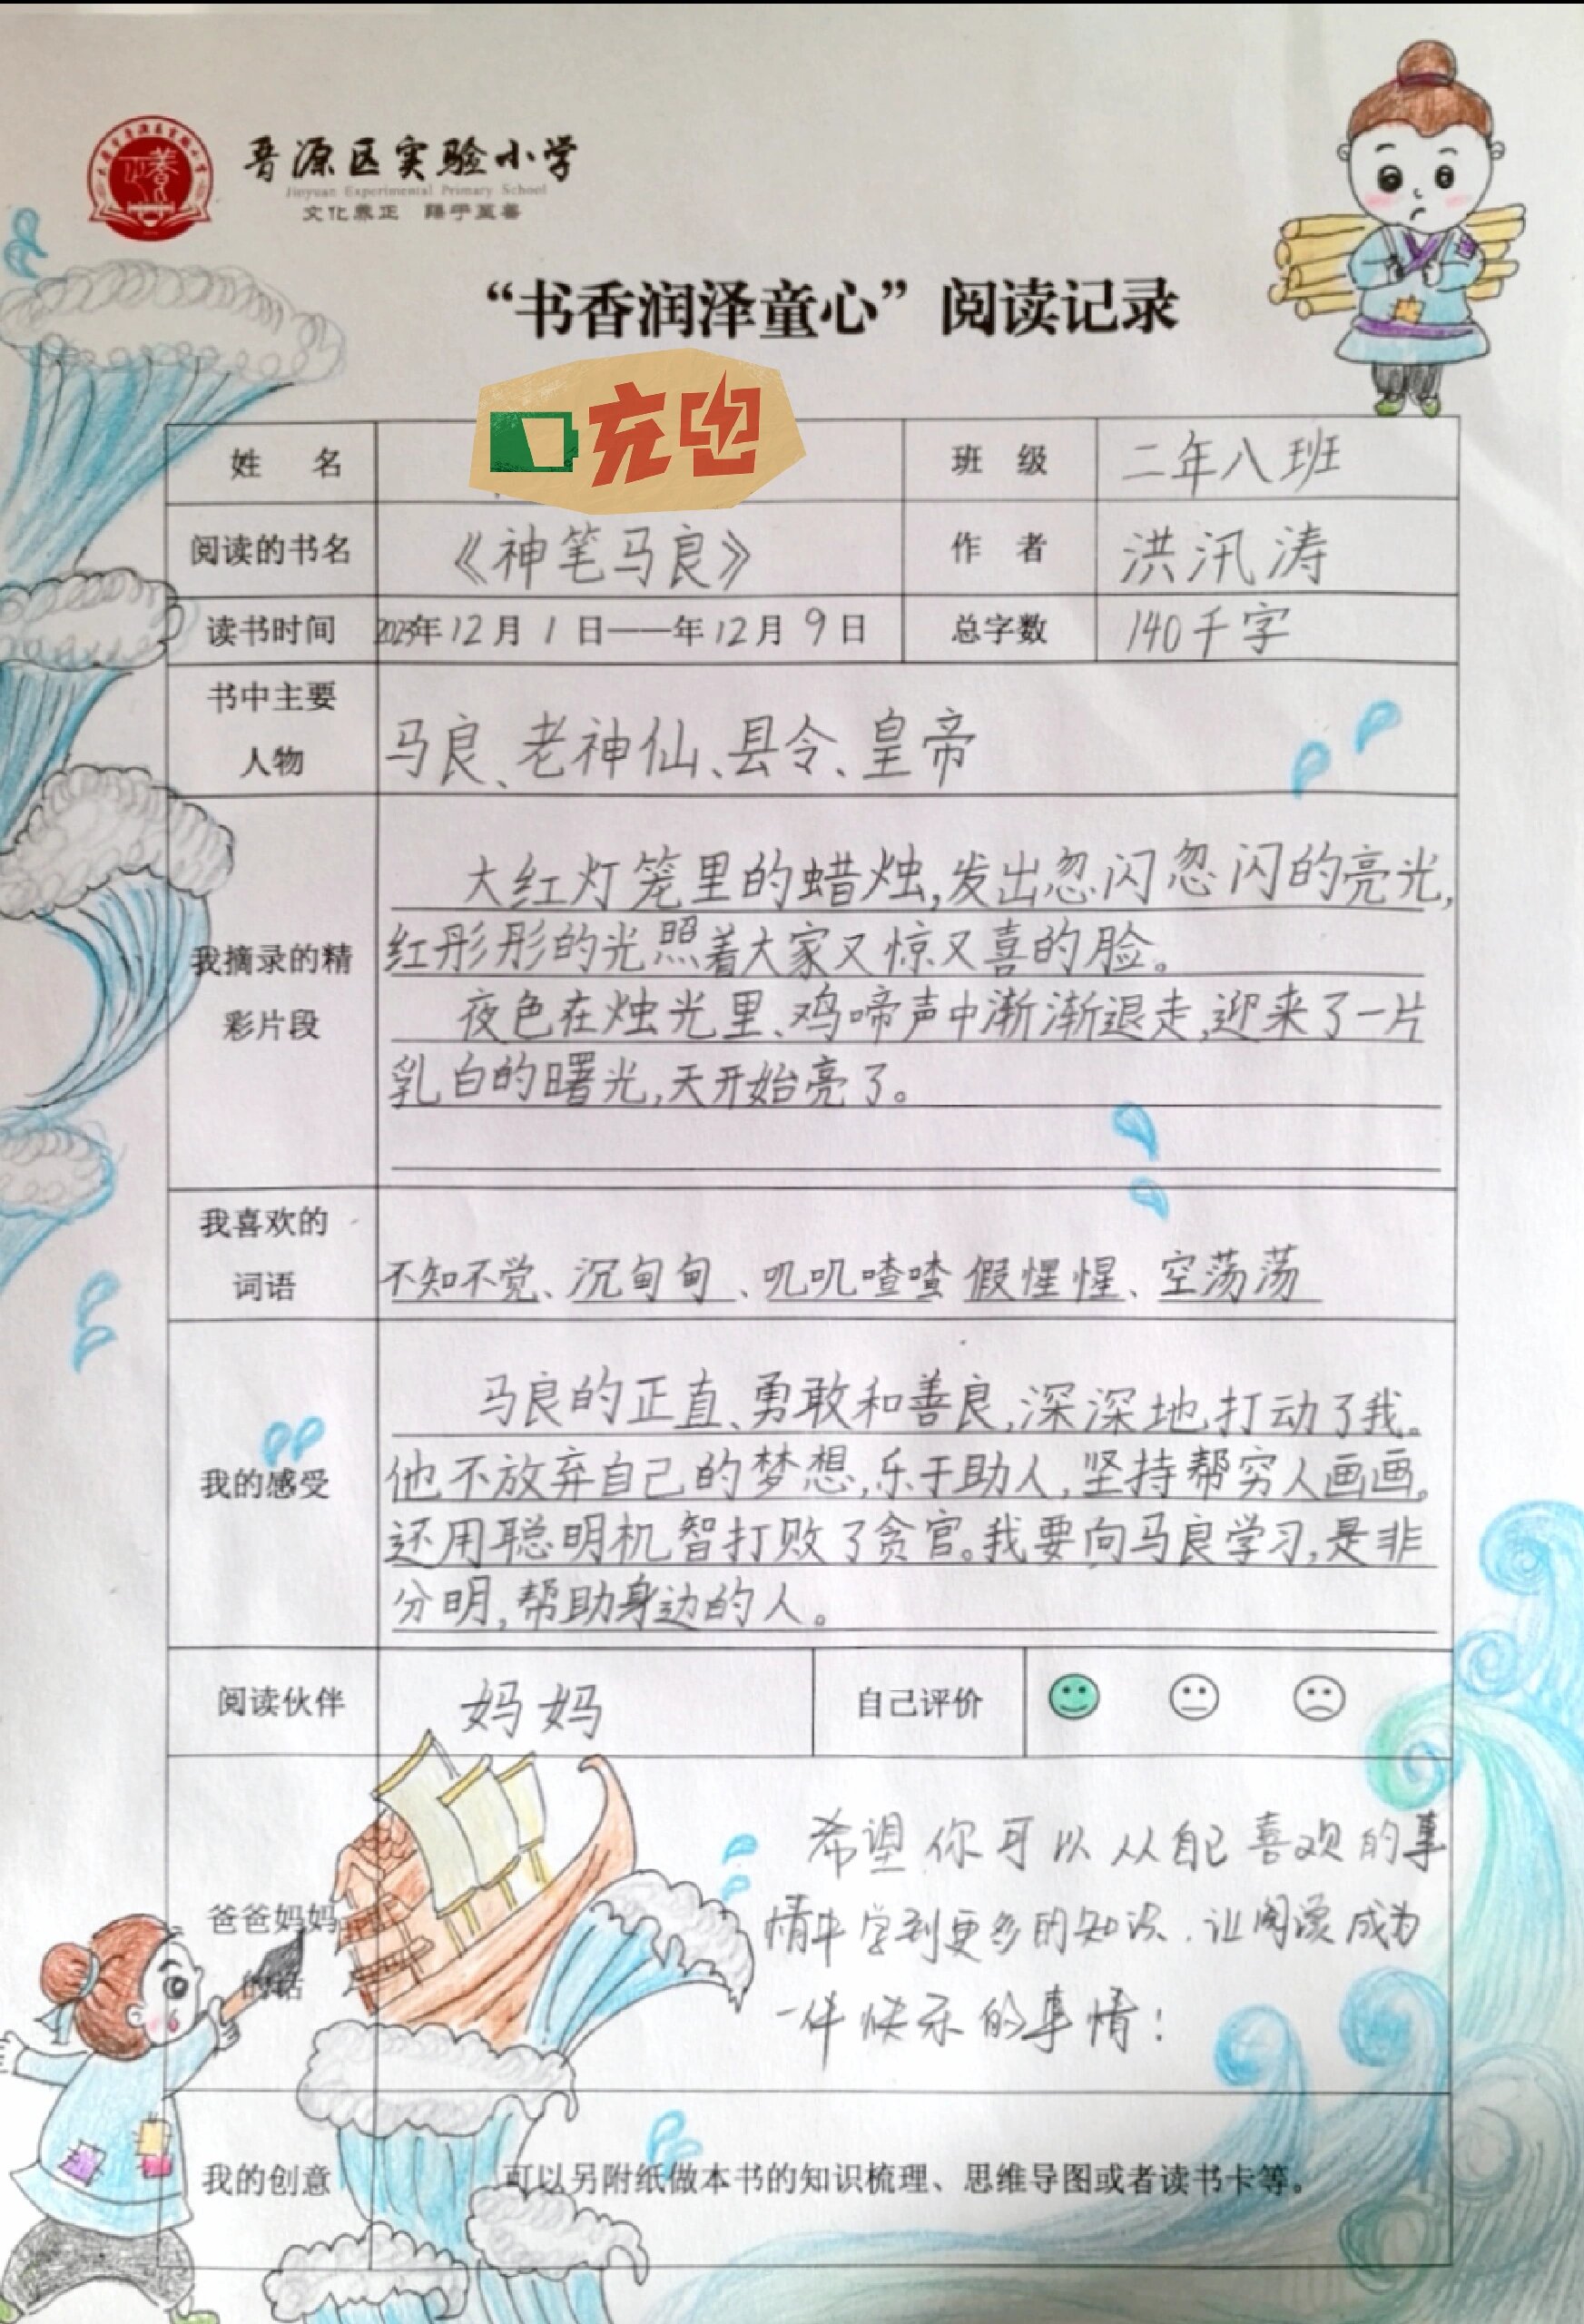 晋源区实验小学
Jinyuan Experimental Primary School
文化养正 臻于至善
“书香润泽童心”阅读记录
充电
姓 名
班 级 二年八班
阅读的书名 《神笔马良》 作 者 洪汛涛
读书时间 2023年12月1日——年12月9日 总字数 140千字
书中主要
人物
马良、老神仙、县令、皇帝
我摘录的精
彩片段
大红灯笼里的蜡烛,发出忽闪忽闪的亮光,
红彤彤的光照着大家又惊又喜的脸。
夜色在烛光里、鸡啼声中渐渐退走,迎来了一片
乳白的曙光,天开始亮了。
我喜欢的
词语
不知不觉、沉甸甸、叽叽喳喳 假惺惺、空荡荡
我的感受
马良的正直、勇敢和善良,深深地打动了我。
他不放弃自己的梦想,乐于助人,坚持帮穷人画画,
还用聪明机智打败了贪官。我要向马良学习,是非
分明,帮助身边的人。
阅读伙伴 妈妈 自己评价
爸爸妈妈
的话
希望你可以从自己喜欢的事
情中学到更多的知识.让阅读成为
一件快乐的事情!
我的创意 可以另附纸做本书的知识梳理、思维导图或者读书卡等。